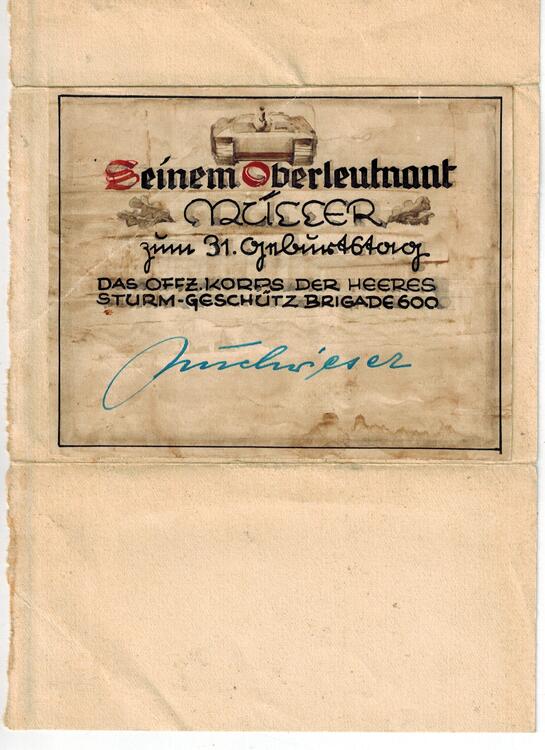 Seinem Oberleutnant
MÜLLER
zum 31. Geburtstag
DAS OFFZ. KORPS DER HEERES
STURM-GESCHÜTZ BRIGADE 600